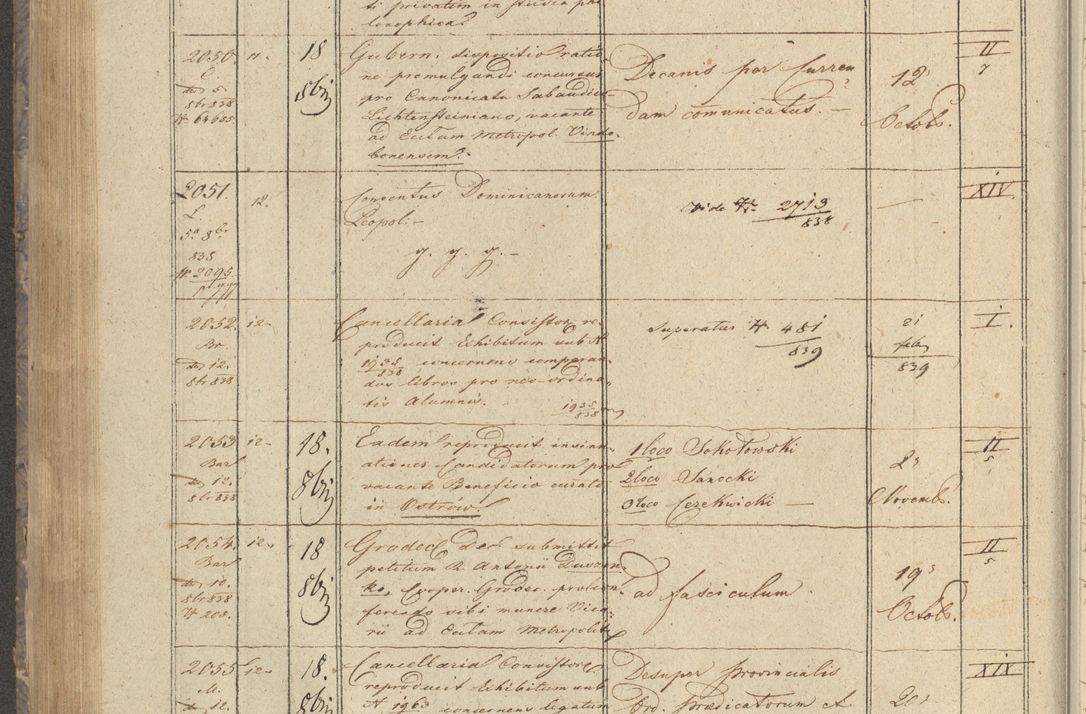 ti privatim in studia phi
losophica.
2050 11. 18 8bris
C
ddo 5.
8br 838
N 63685
Gubern. dispositio ratio
ne promulgandi concursus
pro Canonicatu Sabaudico
Lichtensteiniano, vacante
ad Ecclam Metropol. Vindo
bonensem.
Decanis per Curren
dam comunicatus. —
12
Octob.
II
7
2051. 12.
L.
5a 8br
838
N 2095
Conventus Dominicanorum
Leopol. —
g. g. g. —
Vide N 2713
838
—
XIV
2052. 12.
Br.
ddo 12.
8br 838
Cancellaria Consistor. re
producit Exhibitum sub N
1935
838 concernens comparan
dos libros pro neo-ordina
tis Alumnis.
1935
838
Superatus N 481
839
21
feb
839
I.
2053 12. 18. 8bris
Bar
ddo 12.
8br 838
Eadem reproducit insinu
ationes Candidatorum pro
vacante Beneficio curato
in Ostrów.
1 loco Sokołowski
2 loco Sanocki
3 loco Czekwicki —
2
Novemb.
II
5
2054. 12. 18 8bris
Bar
ddo 10.
8br 838
N 208.
Grodec Dec submittit
petitum R. Antonii
ko, Cooper. Grodec. pro con
ferendo sibi munere Vica
rii ad Ecclam Metropolit
ad fasciculum.
19
Octob.
II
5
2055 12. 18. 8bris
M.
ddo 12.
Cancellaria Consistor.
reproducit Exhibitum sub
N 1963 concernens legatum
Desuper Provincialis
Ord. Prædicatorum et
20
XIX